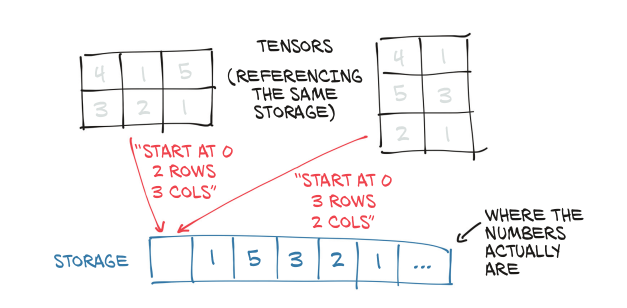 TENSORS
(REFERENCING
THE SAME
STORAGE)
4 1 5
3 2 1
4 1
5 3
2 1
"START AT 0
2 ROWS
3 COLS"
"START AT 0
3 ROWS
2 COLS"
STORAGE
1 5 3 2 1 ...
WHERE THE
NUMBERS
ACTUALLY
ARE